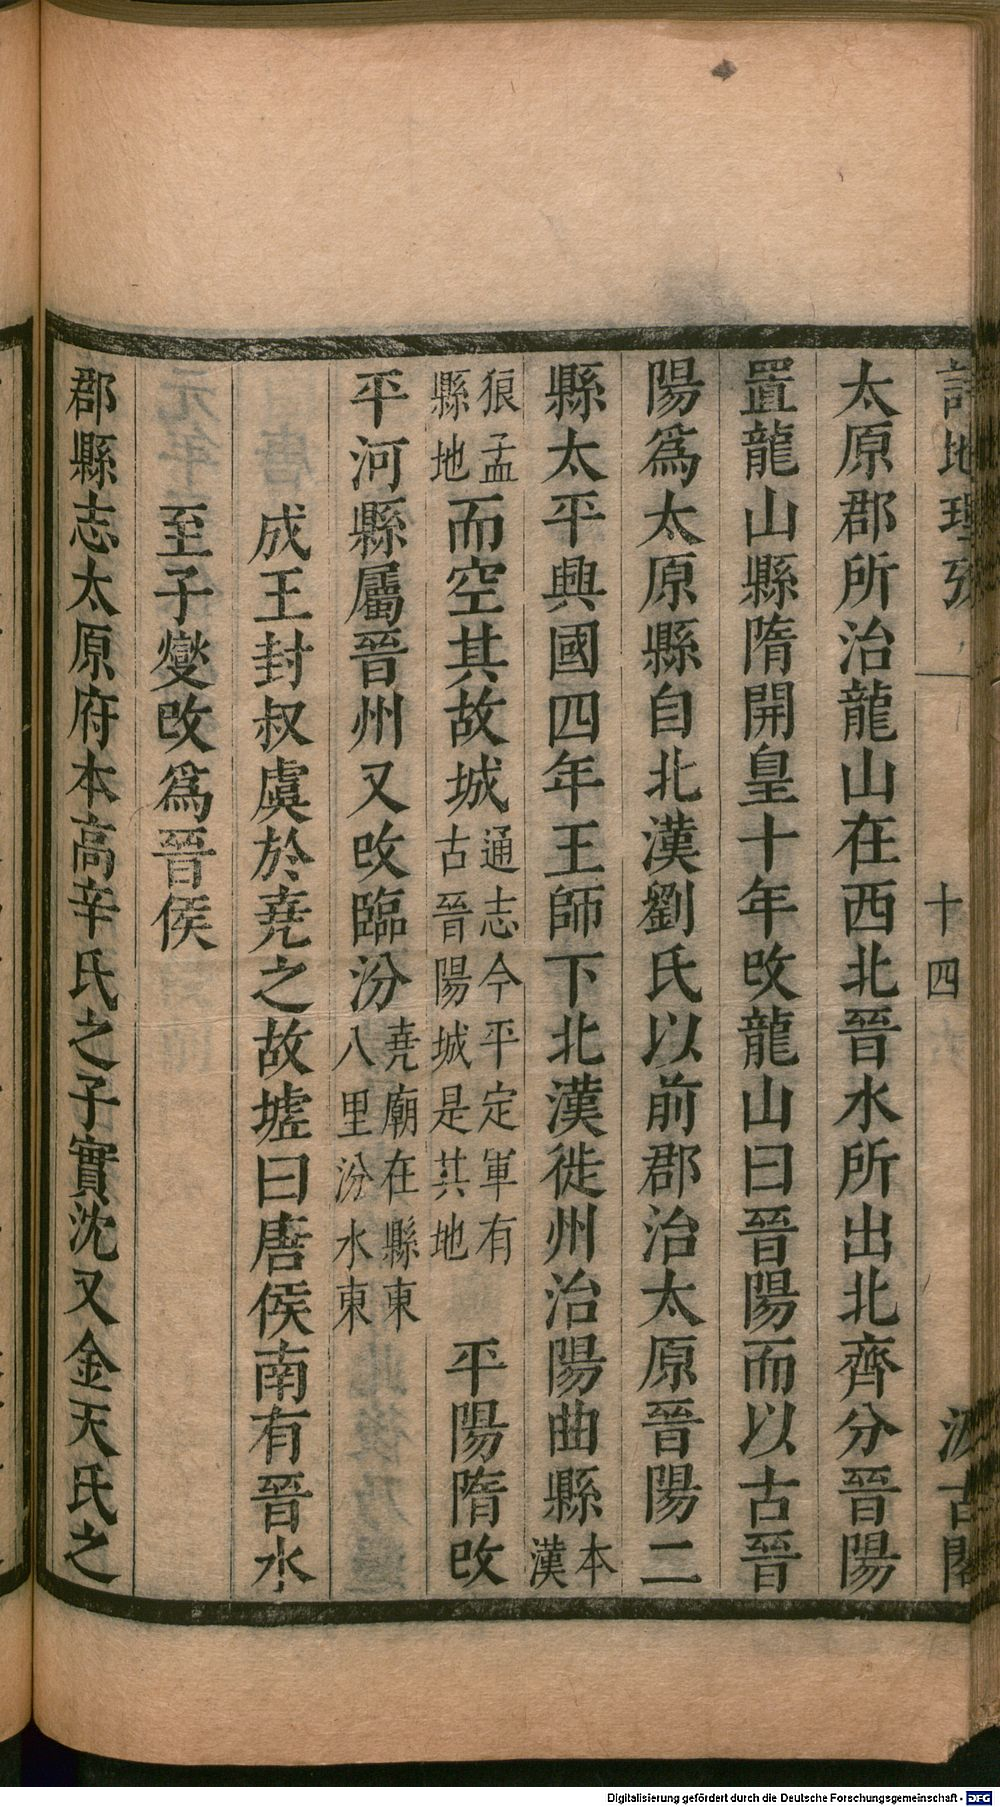 詩地理攷 十四 汲古閣
太原郡所治龍山在西北晉水所出北齊分晉陽
置龍山縣隋開皇十年改龍山曰晉陽而以古晉
陽爲太原縣自北漢劉氏以前郡治太原晉陽二
縣太平興國四年王師下北漢徙州治陽曲縣本漢
狼孟縣地而空其故城通志今平定軍有古晉陽城是其地 平陽隋改
平河縣屬晉州又改臨汾堯廟在縣東八里汾水東
成王封叔虞於堯之故墟曰唐侯南有晉水
至子燮改爲晉侯
郡縣志太原府本高辛氏之子實沈又金天氏之
Digitalisierung gefördert durch die Deutsche Forschungsgemeinschaft - DFG